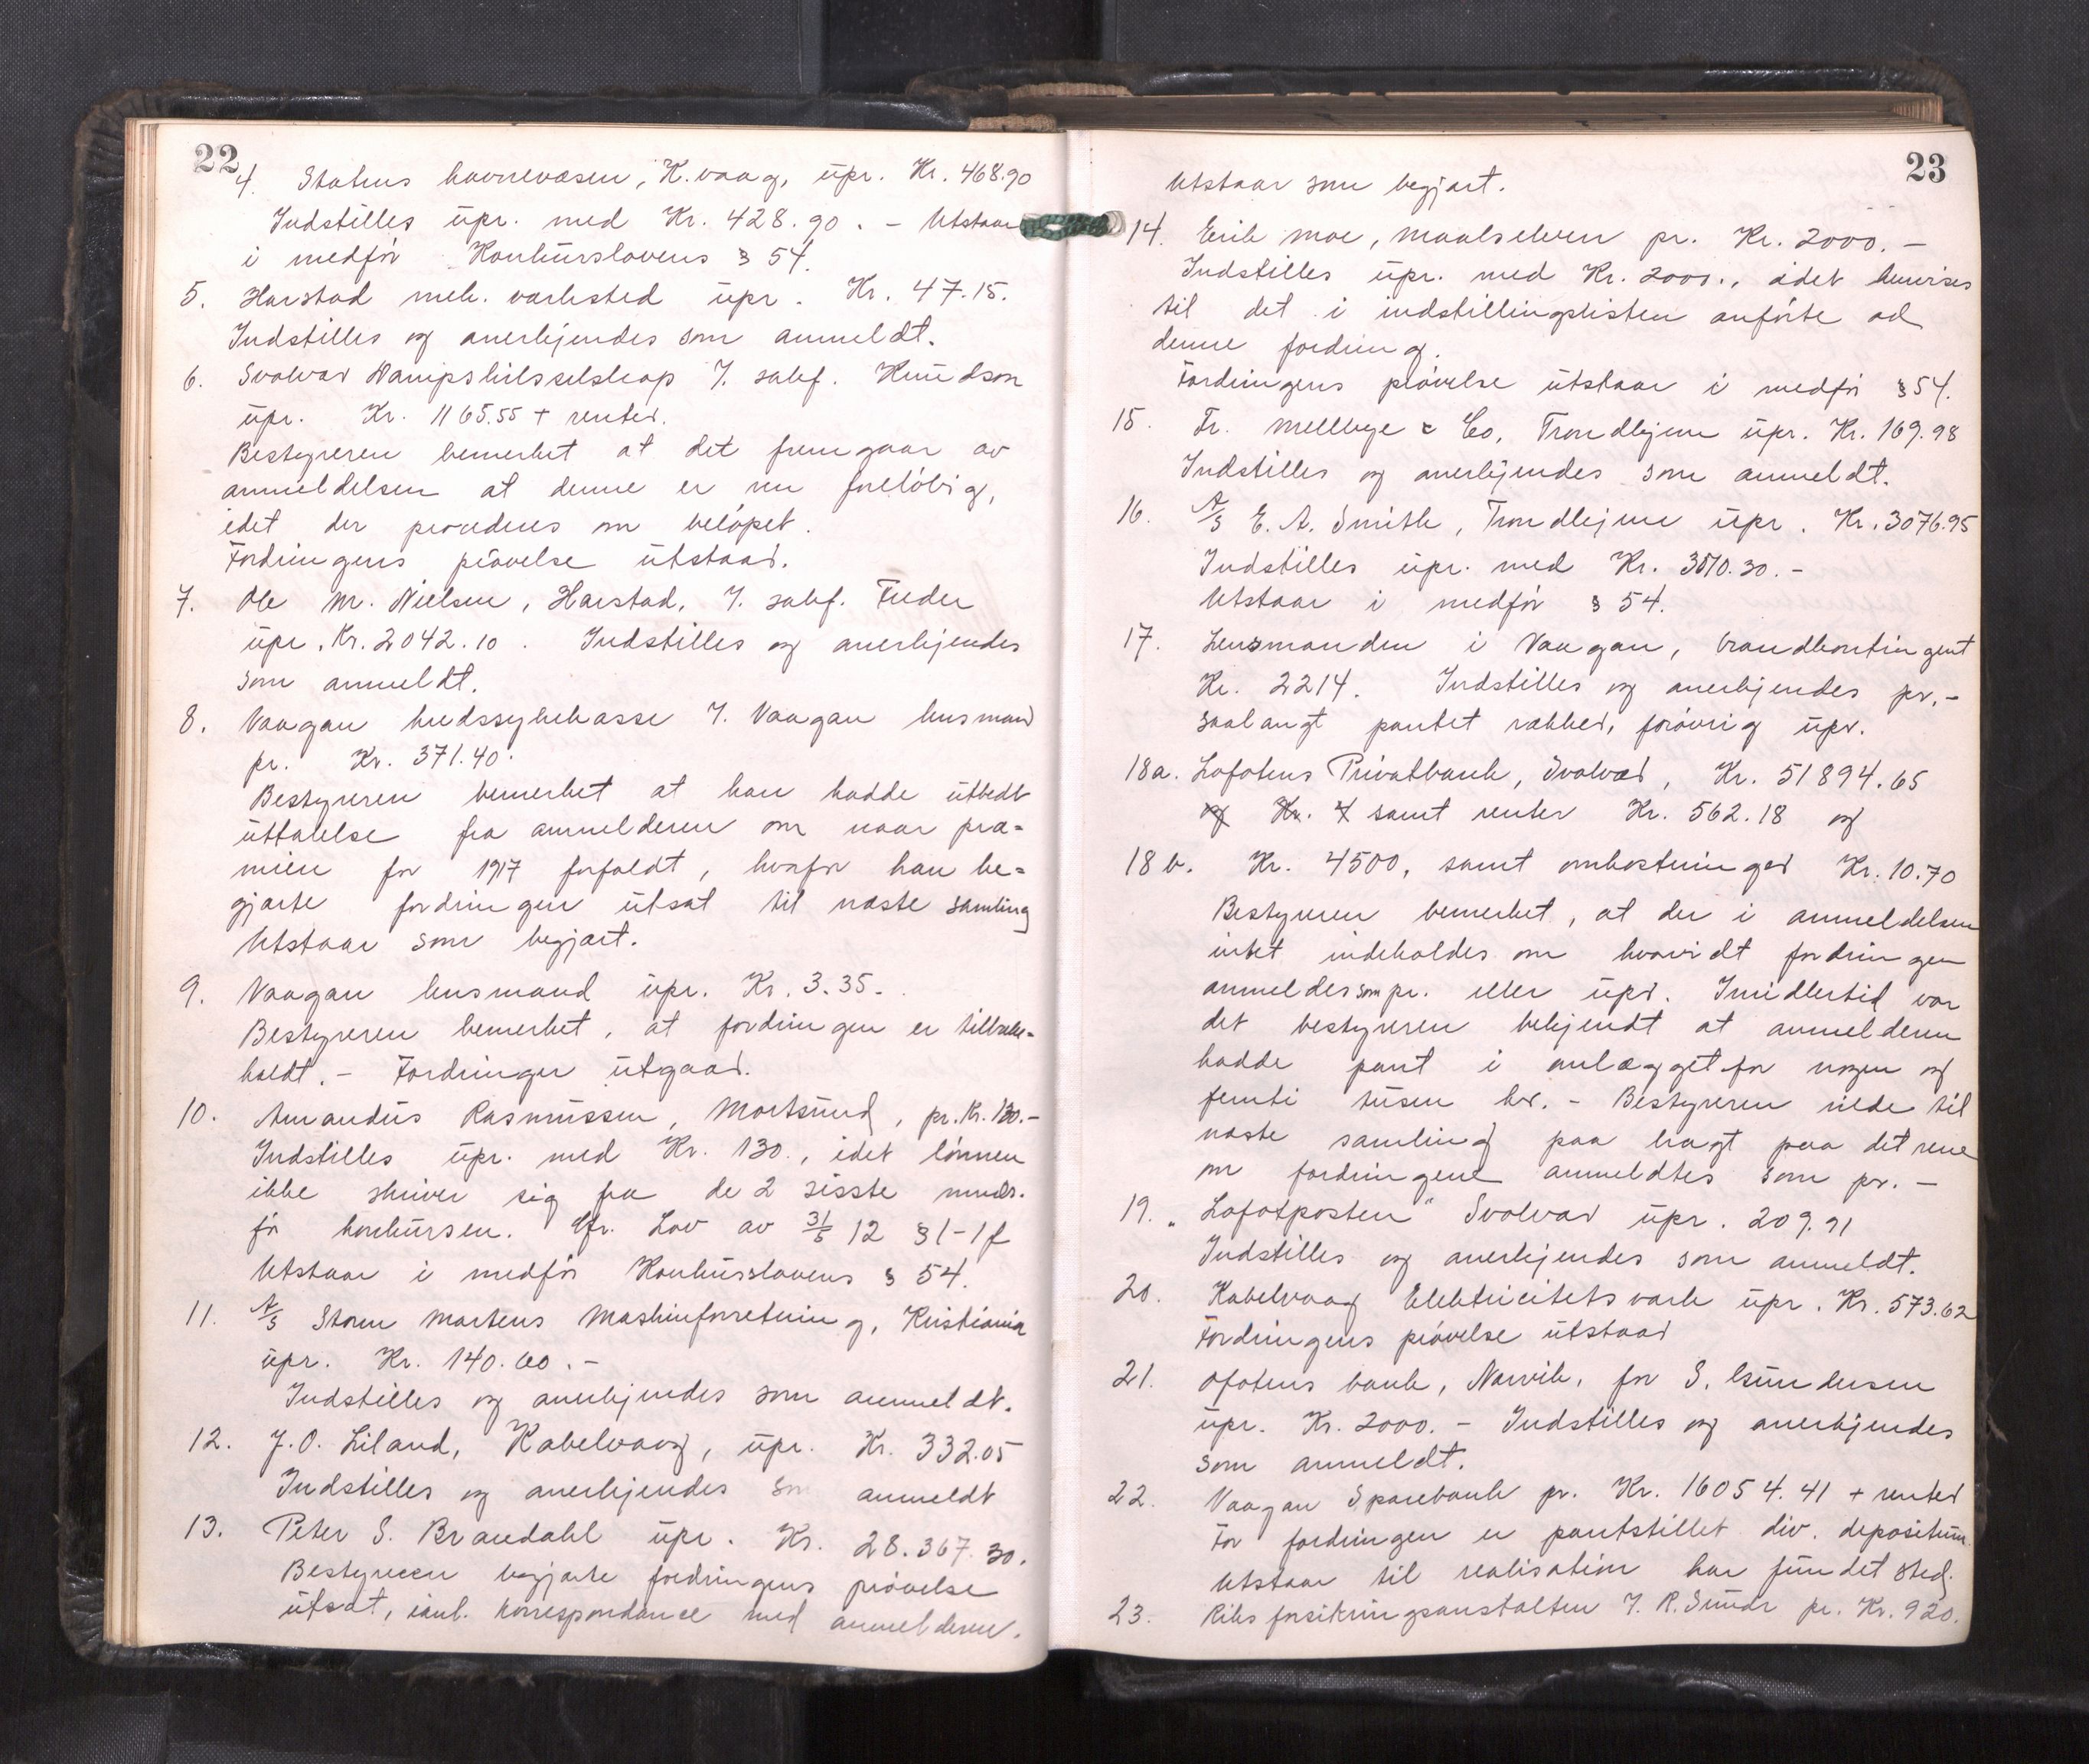 22
4. Statens havnevæsen, K.vaag, upr. Kr. 468.90
Indstilles upr. med Kr. 428.90. - Utstaar
i medför Konkurslovens § 54.
5. Harstad mek. verksted upr. Kr. 47.15.
Indstilles og anerkjendes som anmeldt.
6. Svolvær Dampskibsselskap v. sakf. Knudson
upr. Kr. 1165.55 + renter.
Bestyreren bemerket at det fremgaar av
anmeldelsen at denne er en foreløbig,
idet der procederes om beløpet.
Fordringens prövelse utstaar.
7. Ole M. Nielsen, Harstad, v. sakf. Feder
upr. Kr. 2042.10. Indstilles og anerkjendes
som anmeldt.
8. Vaagan kredssykekasse v. Vaagan lensmand
pr. Kr. 371.40.
Bestyreren bemerket at han hadde utbedt
uttalelse fra anmelderen om naar præ-
mien for 1917 forfaldt, hvorfor han be-
gjærte fordringen utsat til næste samling
Utstaar som begjært.
9. Vaagan lensmand upr. Kr. 3.35.
Bestyreren bemerket, at fordringen er tilbake-
kaldt. - Fordringen utgaar.
10. Amandus Rasmussen, Mortsund, pr. Kr. 130.-
Indstilles upr. med Kr. 130., idet lönnen
ikke skriver sig fra de 2 sisste mndr.
för konkursen. Cfr. Lov av 31/5 12 § 1-1f
Utstaar i medför Konkurslovens § 54.
11. A/S Storm Martens Maskinforretning, Kristiania
upr. Kr. 140.60.-
Indstilles og anerkjendes som anmeldt.
12. J.O. Liland, Kabelvaag, upr. Kr. 332.05
Indstilles og anerkjendes som anmeldt
13. Peter S. Brandahl upr. Kr. 28.367.30.
Bestyreren begjærte fordringens prövelse
utsat, ianl. korrespondance med anmelderen.
23
Utstaar som begjært.
14. Erik Moe, Maalselven pr. Kr. 2000.-
Indstilles upr. med Kr. 2000., idet henvises
til det i indstillingslisten anførte ad
denne fordring.
Fordringens prövelse utstaar i medför § 54.
15. Fr. Mellbye & Co, Trondhjem upr. Kr. 169.98
Indstilles og anerkjendes som anmeldt.
16. A/S E. A. Smith, Trondhjem upr. Kr. 3076.95
Indstilles upr. med Kr. 3070.30.-
Utstaar i medför § 54.
17. Lensmanden i Vaagan, brandkontingent
Kr. 2214. Indstilles og anerkjendes pr.-
saalangt pantet rækker, forövrig upr.
18a. Lofotens Privatbank, Svolvær, Kr. 51894.65
og Kr. 4 samt renter Kr. 562.18 og
18b. Kr. 4500, samt omkostninger Kr. 10.70
Bestyreren bemerket, at der i anmeldelsen
intet indeholdes om hvorvidt fordringen
anmeldes som pr. eller upr. Imidlertid var
det bestyreren bekjendt at anmelderen
hadde pant i anlægget for nogen og
femti tusen kr. - Bestyreren vilde til
næste samling faa bragt paa det rene
om fordringene anmeldtes som pr. -
19. "Lofotposten" Svolvær upr. 209.91
Indstilles og anerkjendes som anmeldt.
20. Kabelvaag Elektricitetsverk upr. Kr. 573.62
Fordringens prövelse utstaar
21. Ofotens bank, Narvik, for S. Gundersen
upr. Kr. 2000. - Indstilles og anerkjendes
som anmeldt.
22. Vaagan Sparebank pr. Kr. 16054.41 + renter
For fordringen er pantstillet div. depositum
Utstaar til realisation har fundet sted.
23. Riksforsikringsanstalten v. R. Sundr pr. Kr. 920.